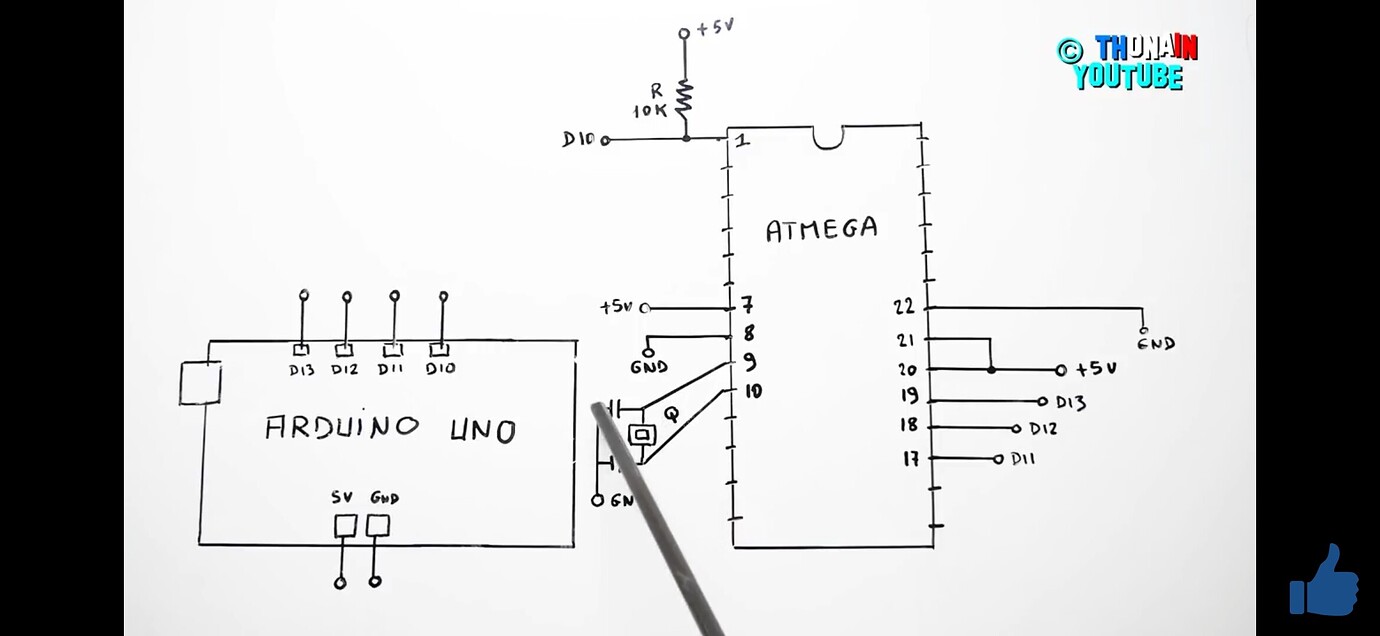 +5V
R
10K
D10
1
ATMEGA
+5V
7
8
GND
9
10
Q
GN
22
GND
21
20
+5V
19
D13
18
D12
17
D11
D13
D12
D11
D10
ARDUINO UNO
5V
GND
© THONAIN
YOUTUBE